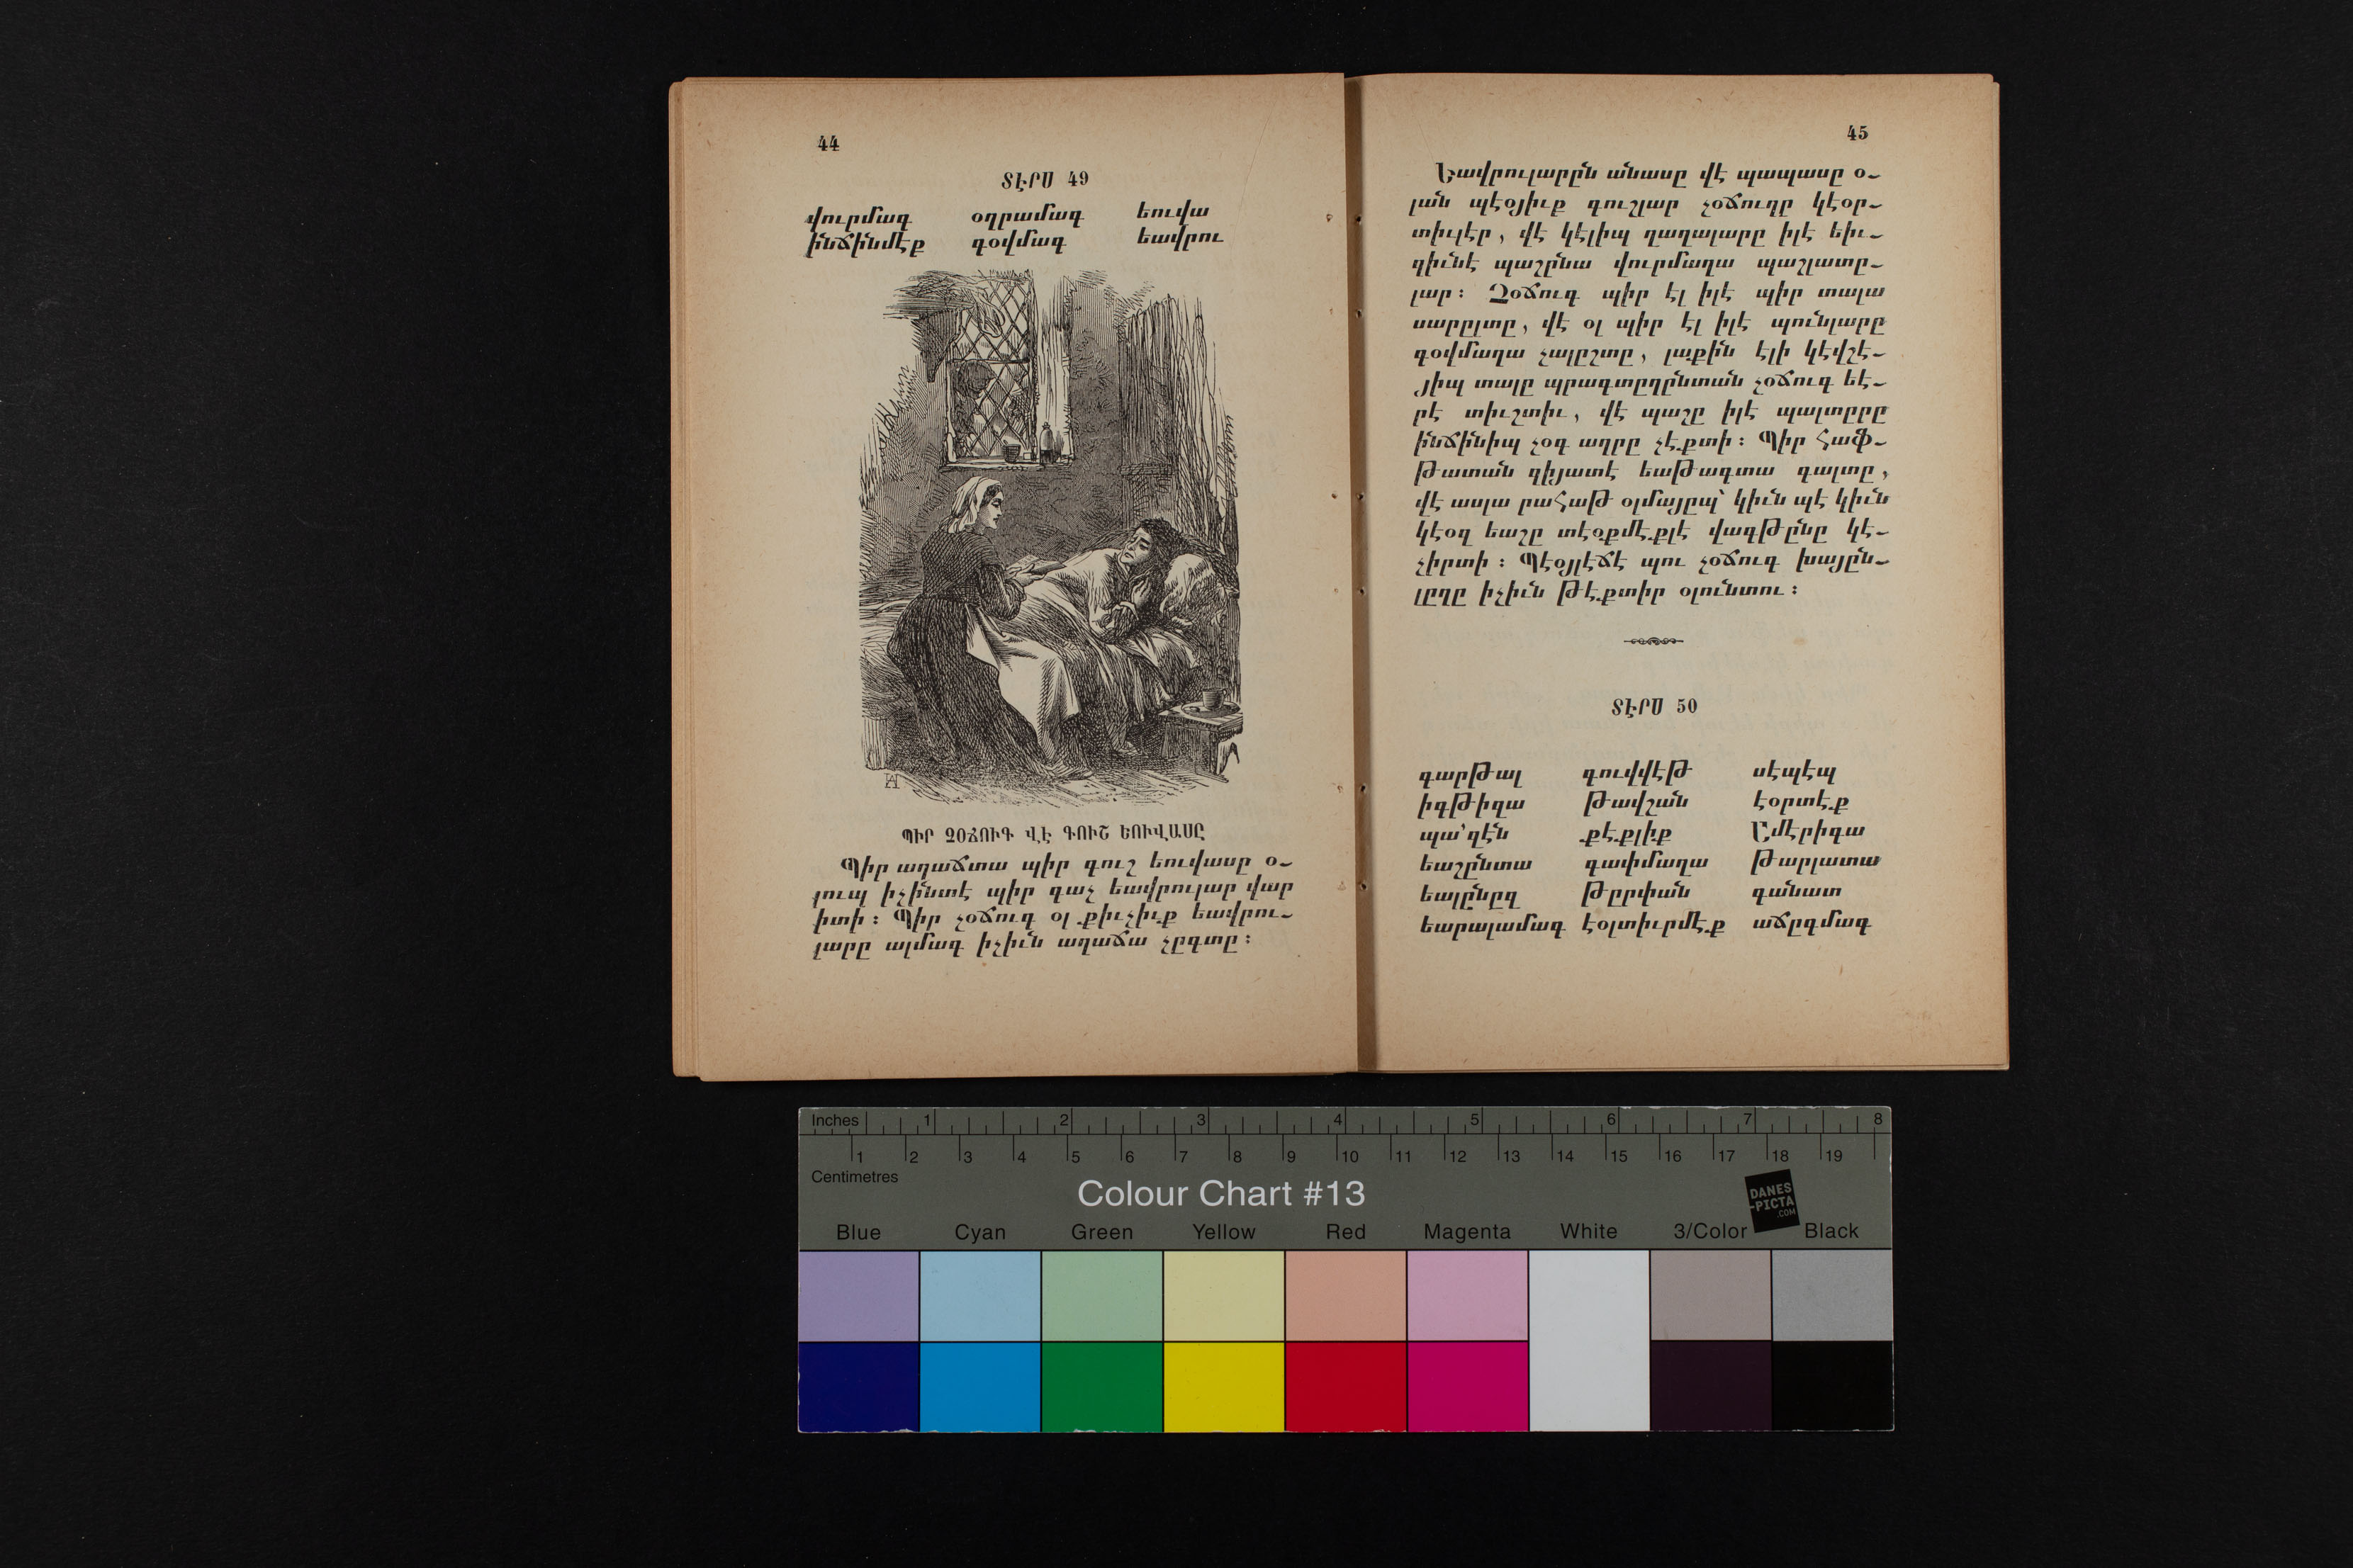 44
ՏԷՐՍ 49
վուրմագ օղրամագ եուվա
ինճինմէք գօվմագ եավրու
ՊԻՐ ՉՕՃՈՒԳ ՎԷ ԳՈՒՇ ԵՈՒՎԱՍԸ
Պիր աղաճտա պիր գուշ եուվասը օ-
լուպ իչինտէ պիր գաչ եավրուլար վար
իտի։ Պիր չօճուգ օլ քիւչիւք եավրու-
լարը ալմագ իչիւն աղաճա չըգտը։
45
Եավրուլարըն անասը վէ պապասը օ-
լան պէօյիւք գուշլար չօճուղը կէօր-
տիւլէր, վէ կէլիպ ղաղալարը իլէ եիւ-
զիւնէ պաշընա վուրմաղա պաշլատը-
լար։ Չօճուգ պիր էլ իլէ պիր տալա
սարըլտը, վէ օլ պիր էլ իլէ պունլարը
գօվմաղա չալըշտը, լաքին էլի կէվշէ-
յիպ տալը պրագտըղընտան չօճուգ եէ-
րէ տիւշտիւ, վէ պաշը իլէ պալտըրը
ինճինիպ չօգ աղրը չէքտի։ Պիր հաֆ-
թատան զիյատէ եաթագտա գալտը,
վէ ասլա րահաթ օլմայըպ՝ կիւն պէ կիւն
կէօզ եաշը տէօքմէքլէ վագթընը կէ-
չիրտի։ Պէօյլէճէ պու չօճուգ խայըն-
լըղը իչիւն թէքտիր օլունտու։
ՏԷՐՍ 50
գարթալ գուվվէթ սէպէպ
իգթիզա թավշան էօրտէք
պա՛զէն քէքլիք Ըմէրիգա
եաշընտա գափմաղա թարլատա
եալընըզ թըրփան գանատ
եարալամագ էօլտիւրմէք աճըգմագ
Inches 1 2 3 4 5 6 7 8
1 2 3 4 5 6 7 8 9 10 11 12 13 14 15 16 17 18 19
Centimetres
Colour Chart #13
DANES
-PICTA
.COM
Blue Cyan Green Yellow Red Magenta White 3/Color Black